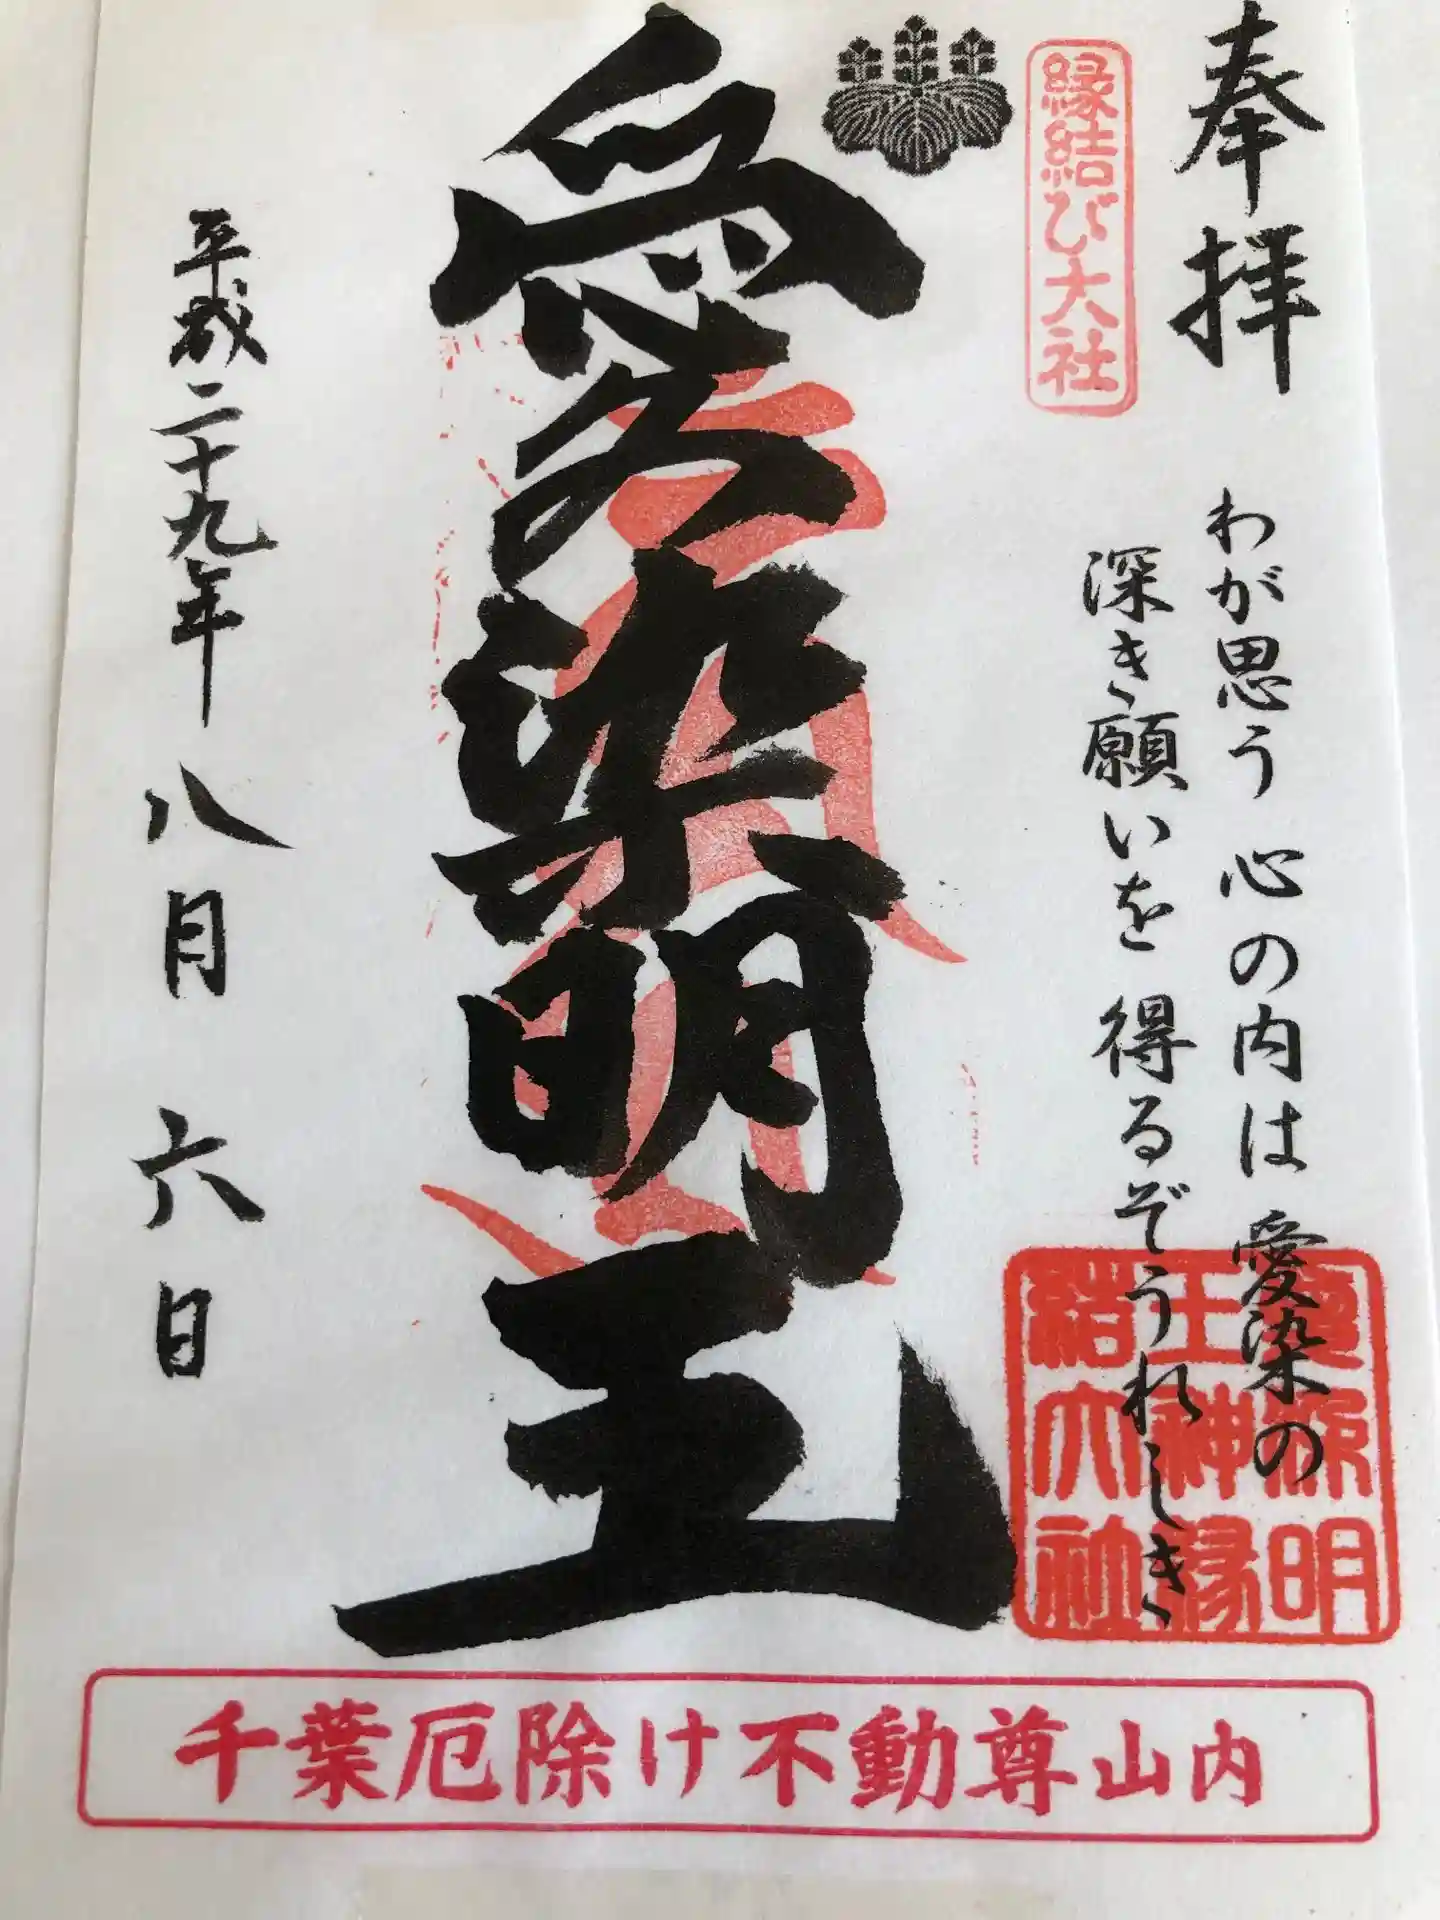 奉拝
縁結び大社
わが思う 心の内は 愛染の
深き願いを 得るぞうれしき
愛染明王
平成二十九年 八月 六日
愛染明
王神縁
結大社
千葉厄除け不動尊山内